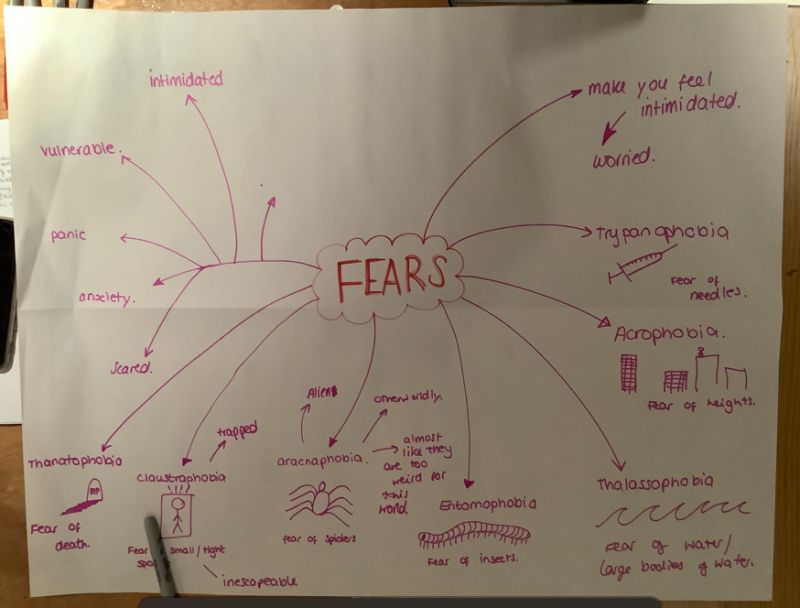 FEARS
intimidated
vulnerable.
panic
anxiety.
scared.
make you feel
intimidated.
worried.
Trypanophobia
Fear of
needles.
Acrophobia.
Fear of heights.
Thalassophobia
Fear of water/
large bodies of water.
Entomophobia
Fear of insects.
aracnaphobia.
Alien
otherworldly.
almost
like they
are too
weird for
this
world
fear of spiders
claustraphobia
trapped
Fear small/tight
inescapeable
Thanatophobia
RIP
Fear of
death.